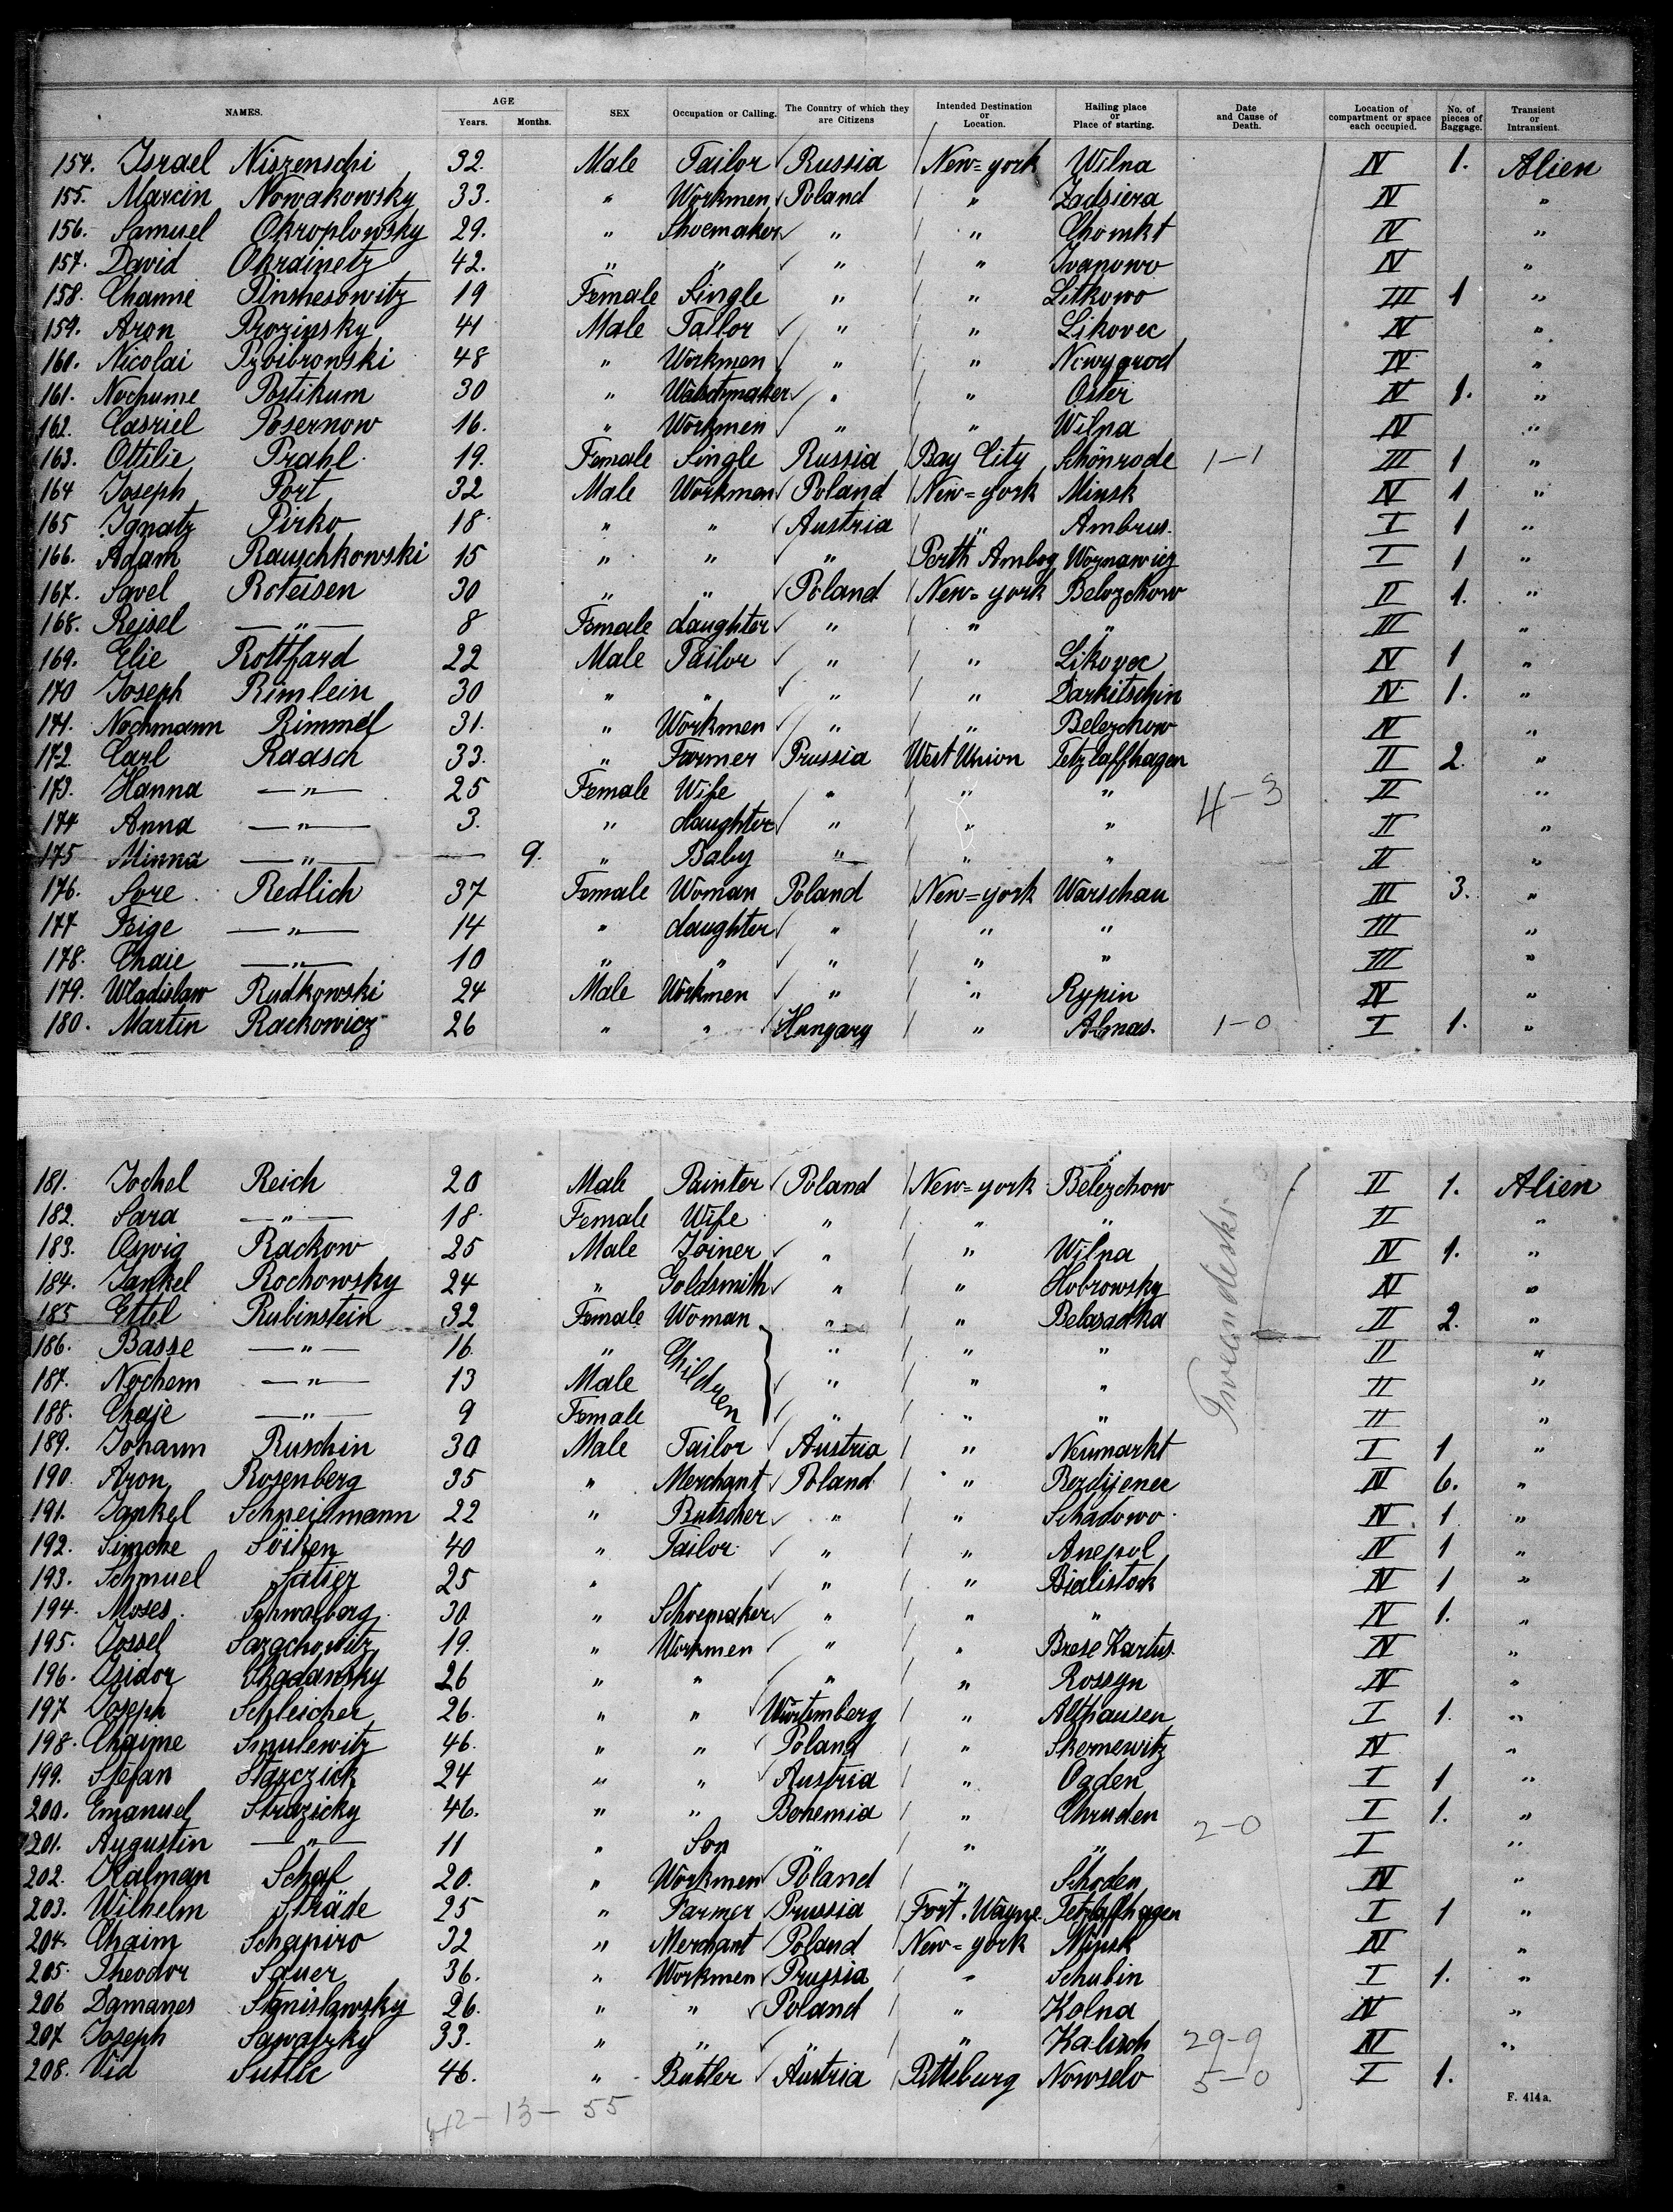 NAMES. AGE Years. Months. SEX Occupation or Calling. The Country of which they are Citizens Intended Destination or Location. Hailing place or Place of starting. Date and Cause of Death. Location of compartment or space each occupied. No. of pieces of Baggage. Transient or Intransient.
154. Israel Niszenschi 32. Male Tailor Russia New=york Wilna IV 1. Alien
155. Marcin Nowakowsky 33. " Workmen Poland " Zadsiera IV "
156. Samuel Okroplowsky 29. " Shoemaker " " Chomkt IV "
157. David Okrainetz 42. " " " " Ivanowo IV "
158. Channe Pinmesowitz 19 Female Single " " Litkowo III 1 "
159. Aron Prozinsky 41 Male Tailor " " Likovec IV "
160. Nicolai Pzbibrowski 48 " Workmen " " Nowygrod IV "
161. Nochume Postikum 30 " Watschmaker " " Oster IV 1. "
162. Casriel Posernow 16. " Workmen " " Wilna IV "
163. Ottilie Prahl 19. Female Single Russia Bay City Schönrode 1-1 III 1 "
164 Joseph Port 32 Male Workmen Poland New=york Minsk IV 1 "
165 Ignatz Pirko 18 " " Austria " Ambrus. I 1 "
166. Adam Rauschkowski 15 " " " Perth Amboy Woznawicz I 1 "
167. Savel Roteisen 30 " " Poland New=york Belozchow II 1. "
168. Rejsel —"— 8 Female daughter " " " III "
169. Elie Rottfard 22 Male Tailor " " Likovec IV 1 "
170 Joseph Rimlein 30 " " " " Darkitschin IV 1. "
171. Nochmann Rimmel 31. " Workmen " " Belezchow IV "
172 Carl Raasch 33. " Farmer Prussia West Union Tetzlaffhagen II 2. "
173. Hanna —"— 25 Female Wife " " " 4-3 II "
174 Anna —"— 3. " daughter " " " II "
175 Minna —"— — 9. " Baby " " " II "
176. Sore Redlich 37 Female Woman Poland New=york Warschau III 3. "
177 Feige —"— 14 " daughter " " " III "
178. Chaie —"— 10 " " " " " III "
179. Wladislaw Rudkowski 24 Male Workmen " " Rypin IV "
180. Martin Rackowicz 26 " " Hungary " Almas. 1-0 I 1. "
181. Jochel Reich 20 Male Painter Poland New=york Belezchow II 1. Alien
182. Sara —"— 18. Female Wife " " " II "
183. Oswig Rackow 25 Male Joiner " " Wilna IV 1. "
184. Jankel Rochowsky 24 " Goldsmith " " Hobrowsky IV "
185 Ettel Rubinstein 32 Female Woman " " Belasadka II 2. "
186. Basse —"— 16. " Children " " " II "
187. Nochem —"— 13 Male " " " II "
188. Chaje —"— 9 Female " " " II "
189. Johann Ruschin 30 Male Tailor Austria " Neumarkt I 1 "
190 Aron Rosenberg 35 " Merchant Poland " Berdijener IV 6. "
191. Jankel Schneidmann 22 " Butscher " " Schadowo IV 1 "
192. Simche Söiken 40 " Tailor " " Anepol IV 1 "
193. Schmuel Satier 25 " " " Bialistock IV 1 "
194. Moses Schwalberg 30 " Schoemaker " " " IV 1. "
195. Jossel Sargchowitz 19. " Workmen " " Brese Kartus. IV "
196. Isidor Chadansky 26 " " " " Rossyn IV "
197 Joseph Schleicher 26. " " Würtemberg " Althausen I 1. "
198. Chaime Smulewitz 46. " " Poland " Skernewitz IV "
199. Stefan Starczick 24 " " Austria " Ogden I 1 "
200. Emanuel Strazicky 46. " " Bohemia " Chruden I 1. "
201. Augustin —"— 11 " Son " " " 2-0 I "
202. Kalman Schaf 20. " Workmen Poland " Schoden IV "
203. Wilhelm Sträde 25 " Farmer Prussia Fort. Wayne Tetzlaffhagen I 1 "
204. Chaim Schapiro 32 " Merchant Poland New=york Minsk IV "
205. Theodor Sauer 36. " Workmen Prussia " Schubin I 1. "
206 Damanes Stanislawsky 26. " " Poland " Kolna IV "
207. Joseph Sawatzky 33. " " " " Kalisch 29-9 IV "
208. Vid Sutlic 46. " Butler Austria Pitteburg Nowselo 5-0 I 1.
42-13-55
F. 414 a.